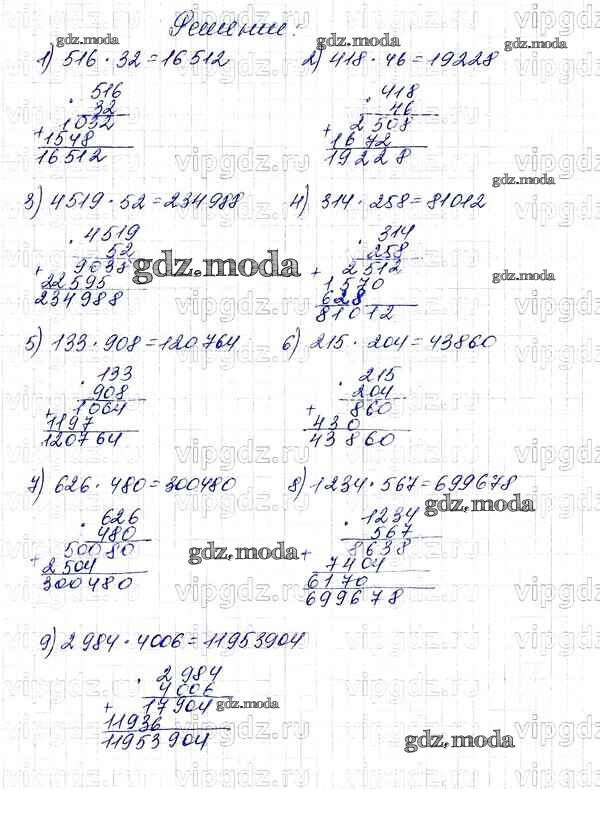 Решение:
1) 516 · 32 = 16512
516
32
1032
+
1548
16512
2) 418 · 46 = 19228
418
46
2508
+
1672
19228
3) 4519 · 52 = 234988
4519
52
9038
+
22595
234988
4) 314 · 258 = 81012
314
258
2512
+
1570
628
81012
5) 133 · 908 = 120764
133
908
1064
+
1197
120764
6) 215 · 204 = 43860
215
204
860
+
430
43860
7) 626 · 480 = 300480
626
480
50080
+
2504
300480
8) 1234 · 567 = 699678
1234
567
8638
+
7404
6170
699678
9) 2984 · 4006 = 11953904
2984
4006
17904
+
11936
11953904
gdz.moda
gdz.moda
gdz.moda
gdz.moda
gdz.moda
gdz.moda
gdz.moda
gdz.moda
gdz.moda
gdz.moda
vipgdz.ru